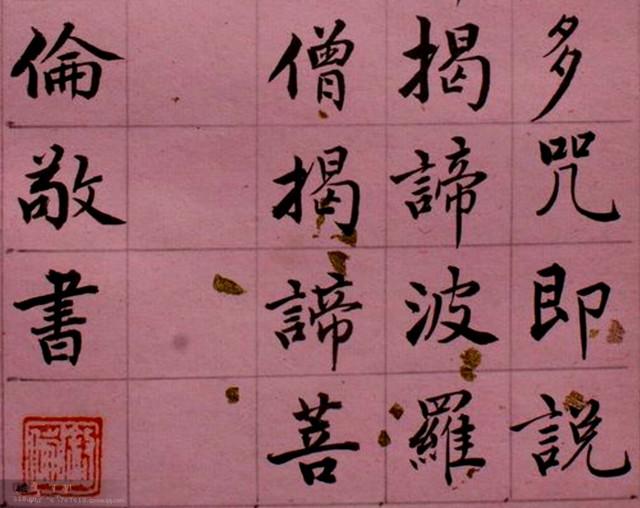 多咒即説
揭諦波羅
僧揭諦菩
倫敬書